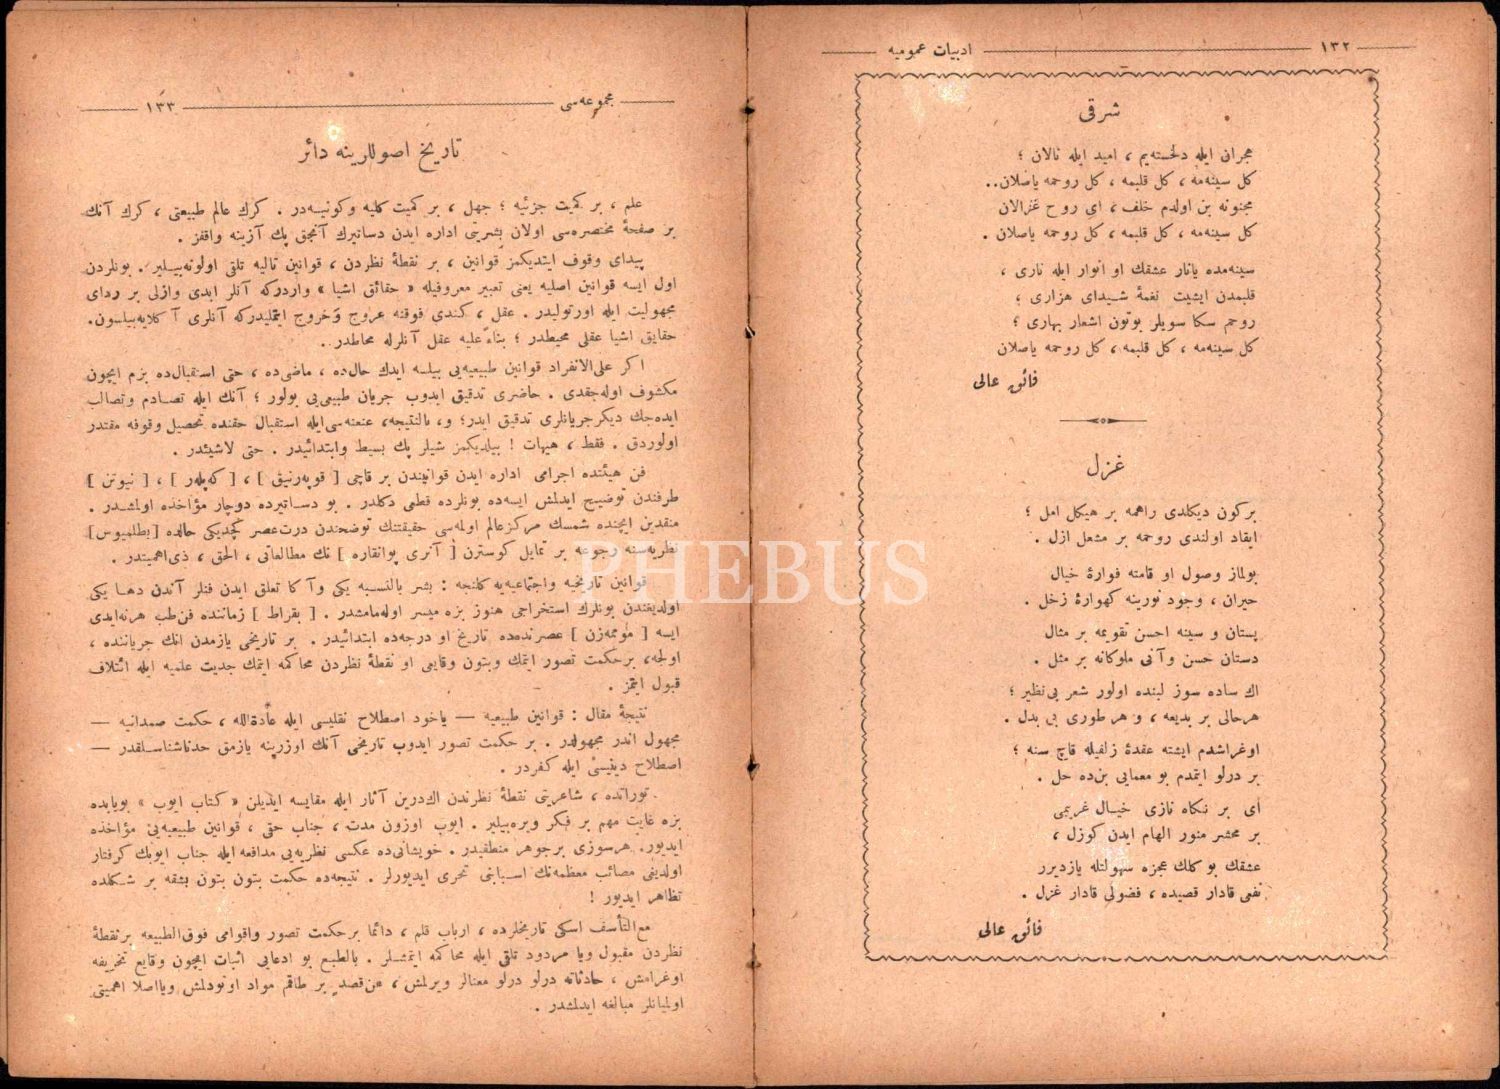 ١٣٢ ادبيات عموميه
شرقى
هجران ايله دلخسته‌يم ، اميد ايله نالان ؛
كل سينه‌مه ، كل قلبمه ، كل روحمه ياصلان..
مجنونه بن اولدم خلف ، اى روح غزالان
كل سينه‌مه ، كل قلبمه ، كل روحمه ياصلان .
سينه‌مده يانار عشقك او انوار ايله نارى ،
قلبمدن ايشيت نغمۀ شيداى هزارى ؛
روحم سكا سويلر بوتون اشعار بهارى ؛
كل سينه‌مه ، كل قلبمه ، كل روحمه ياصلان
فائق عالى
غزل
بركون ديكلدى راهمه بر هيكل امل ؛
ايقاد اولندى روحمه بر مشعل ازل .
بولماز وصول او قامته فوارۀ خيال
حيران ، وجود نورينه كهوارۀ زحل .
پستان و سينه احسن تقويمه بر مثال
دستان حسن وآنى ملوكانه بر مثل .
اك ساده سوز لبنده اولور شعر بى نظير ؛
هرحالى بر بديعه ، و هر طورى بى بدل .
اوغراشدم ايشته عقدۀ زلفيله قاچ سنه ؛
بر درلو ايتمدم بو معمايى بن‌ده حل .
اى بر نكاه نازى خيال غريمى
بر محشر منور الهام ايدن كوزل ،
عشقك بو كلك عجزه سهولتله يازديرر
نفعى قادار قصيده ، فضولى قادار غزل .
فائق عالى
مجموعه‌سى ١٣٣
تاريخ اصوللرينه دائر
علم ، بر كميت جزئيه ؛ جهل ، بر كميت كليه وكونيه‌در . كرك عالم طبيعتى ، كرك آنك
بر صفحۀ مختصره‌سى اولان بشريتى اداره ايدن دساتيرك آنجق پك آزينه واقفز .
پيداى وقوف ايتديكمز قوانين ، بر نقطۀ نظردن ، قوانين تاليه تلقى اولونه‌بيلير . بونلردن
اول ايسه قوانين اصليه يعنى تعبير معروفيله « حقائق اشيا » واردركه آنلر ابدى وازلى بر رداى
مجهوليت ايله اورتوليدر . عقل ، كندى فوقنه عروج وخروج ايتمليدركه آنلرى آ كلايه‌بيلسون.
حقايق اشيا عقلى محيطدر ؛ بناءً عليه عقل آنلرله محاطدر .
اكر على‌الانفراد قوانين طبيعيه‌يى بيلسه ايدك حال‌ده ، ماضى‌ده ، حتى استقبال‌ده بزم ايچون
مكشوف اوله‌جقدى . حاضرى تدقيق ايدوب جريان طبيعى‌يى بولور ؛ آنك ايله تصادم وتصالب
ايده‌جك ديكر جريانلرى تدقيق ايدر؛ و، بالنتيجه، عنعنه‌سى‌ايله استقبال حقنده تحصيل وقوفه مقتدر
اولوردق . فقط ، هيهات ! بيلديكمز شيلر پك بسيط وابتدائيدر . حتى لاشيئدر .
فن هيئتده اجرامى اداره ايدن قوانيندن بر قاچى [ قوپه‌رنيق ] ، [ كه‌پله‌ر ] ، [ نيوتن ]
طرفندن توضيح ايدلمش ايسه‌ده بونلرده قطعى دكلدر . بو دساتيرده دوچار مؤاخذه اولمشدر .
منقدين ايچنده شمسك مركز عالم اولمه‌سى حقيقتنك توضحندن درت عصر كچديكى حالده [بطلميوس]
نظريه‌سنه رجوعه بر تمايل كوسترن [ آنرى پوانقاره ] نك مطالعاتى ، الحق ، ذى‌اهميتدر .
قوانين تاريخيه واجتماعيه‌يه كلنجه : بشر بالنسبه يكى وآ كا تعلق ايدن فنلر آندن دها يكى
اولديغندن بونلرك استخراجى هنوز بزه ميسر اوله‌مامشدر . [ بقراط ] زماننده فن‌طب هرنه‌ايدى
ايسه [ مومه‌زن ] عصرنده‌ده تاريخ او درجه‌ده ابتدائيدر . بر تاريخى يازمدن انك جرياننده ،
اولجه، بر حكمت تصور ايتمك وبتون وقايعى او نقطۀ نظردن محاكمه ايتمك جديت علميه ايله ائتلاف
قبول ايتمز .
نتيجۀ مقال : قوانين طبيعيه — ياخود اصطلاح نقليسى ايله عادةالله ، حكمت صمدانيه —
مجهول اندر مجهولدر . بر حكمت تصور ايدوب تاريخى آنك اوزرينه يازمق حدناشناسلقدر —
اصطلاح دينيسى ايله كفردر .
توراتده ، شاعريتى نقطۀ نظرندن اك‌درين آثار ايله مقايسه ايديلن « كتاب ايوب » بوبابده
بزه غايت مهم بر فكر ويره‌بيلير . ايوب اوزون مدت ، جناب حقى ، قوانين طبيعيه‌يى مؤاخذه
ايديور. هرسوزى برجوهر منطقيدر . خويشانى‌ده عكسى نظريه‌يى مدافعه ايله جناب ايوبك كرفتار
اولديغى مصائب معظمه‌نك اسبابنى تحرى ايديورلر . نتيجه‌ده حكمت بتون بتون بشقه بر شكلده
تظاهر ايديور !
مع‌التأسف اسكى تاريخلرده ، ارباب قلم ، دائما برحكمت تصور واقوامى فوق‌الطبيعه برنقطۀ
نظردن مقبول ويا مردود تلقى ايله محاكمه ايتمشلر . بالطبع بو ادعايى اثبات ايچون وقايع تحريفه
اوغرامش ، حادثاته درلو درلو معنالر ويرلمش ، عن‌قصد بر طاقم مواد اونودلمش ويااصلا اهميتى
اولميانلر مبالغه ايدلمشدر .
PHEBUS